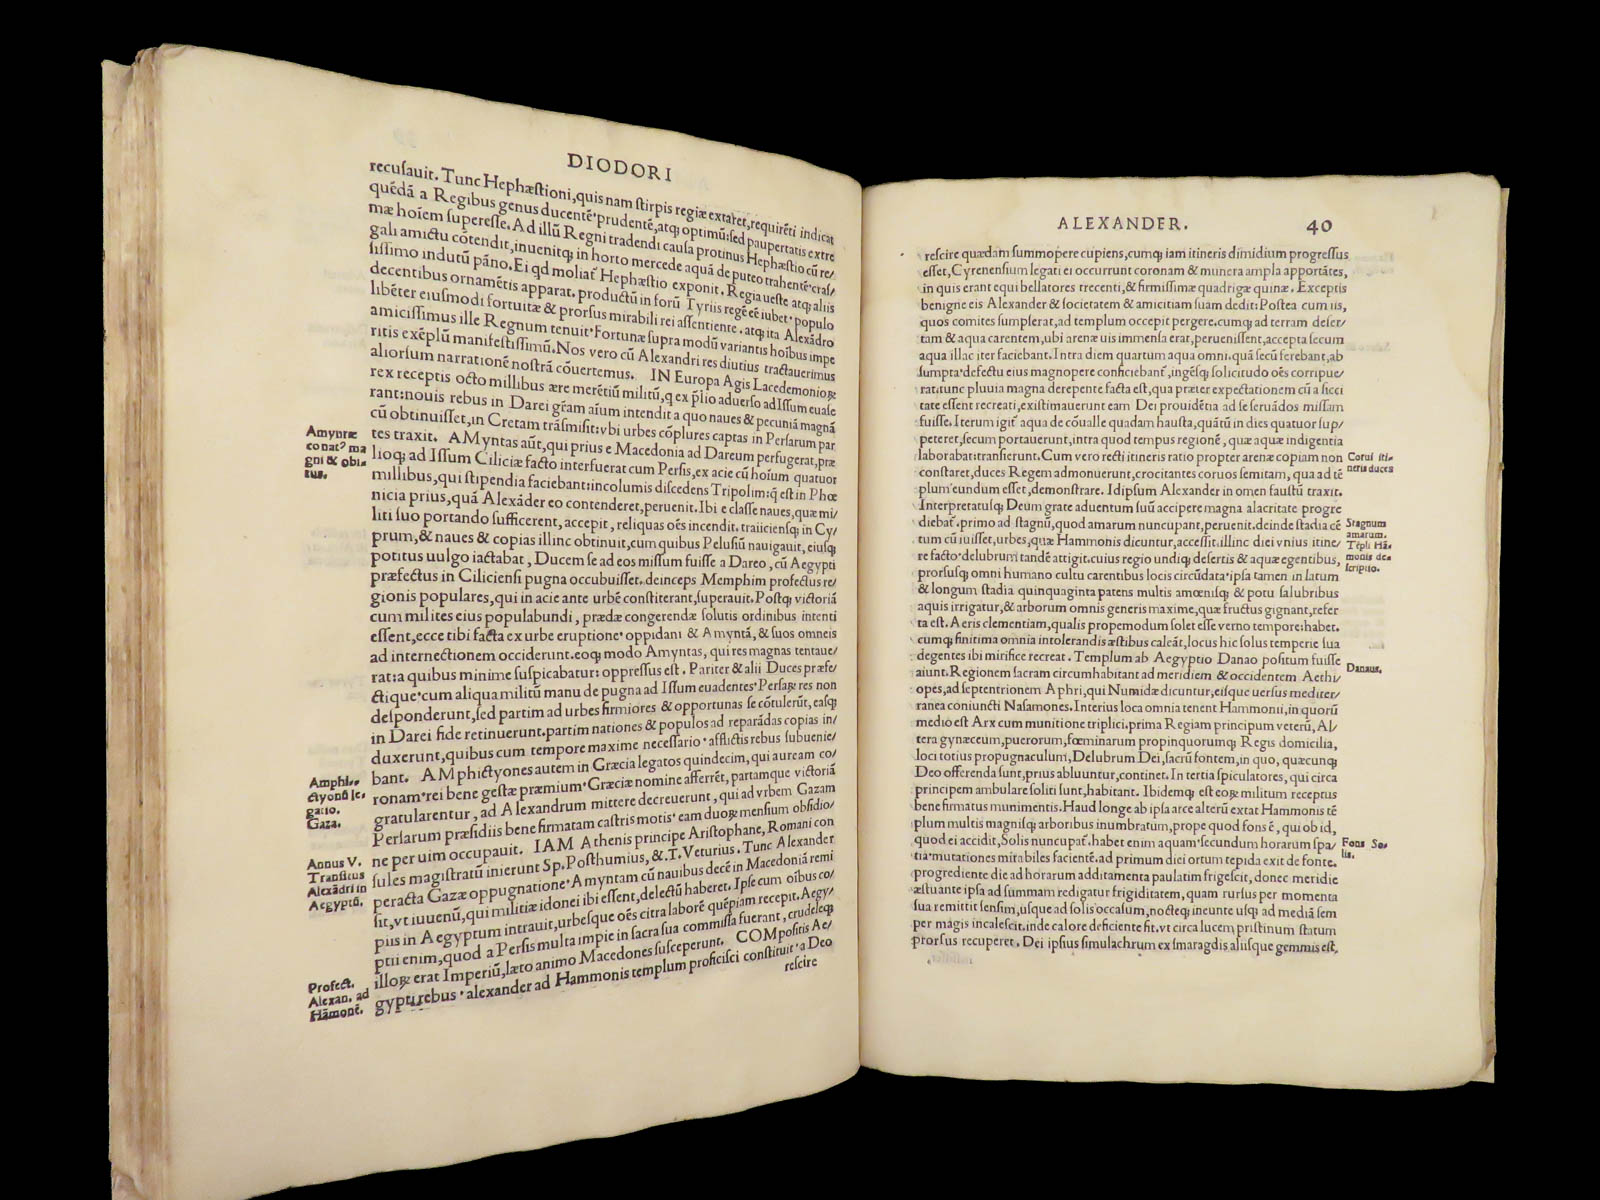 DIODORI
recuſauit. Tunc Hephæſtioni, quis nam ſtirpis regiæ extaret, requirēti indicat
quēdā a Regibus genus ducentē·prudentē, atq; optimū: ſed paupertatis extre
mæ hoīem ſupereſſe. Ad illū Regni tradendi cauſa protinus Hephæſtio cū re/
gali amictu cōtendit, inuenitq; in horto mercede aquā de puteo trahentē·craſ/
ſiſſimo indutū pāno. Ei qd moliat Hephæſtio exponit. Regia ueſte atq; aliis
decentibus ornamētis apparat. productū in forū Tyriis regē eē iubet· populo
libēter eiuſmodi fortuitæ & prorſus mirabili rei aſſentiente. atq; ita Alexādro
amiciſſimus ille Regnum tenuit·Fortunæ ſupra modū variantis hoībus impe
ritis exēplū manifeſtiſſimū. Nos vero cū Alexandri res diutius tractauerimus
aliorſum narrationē noſtrā cōuertemus. IN Europa Agis Lacedemonioꝝ
rex receptis octo millibus ære merētiū militū, q ex p̄lio aduerſo ad Iſſum euaſe
rant: nouis rebus in Darei gr̄am aīum intendit a quo naues & pecuniā magnā
cū obtinuiſſet, in Cretam trāſmiſit: vbi urbes cōplures captas in Perſarum par
tes traxit. AMyntas aūt, qui prius e Macedonia ad Dareum perfugerat, præ
lioq; ad Iſſum Ciliciæ facto interfuerat cum Perſis, ex acie cū hoīum quatuor
millibus, qui ſtipendia faciebant: incolumis diſcedens Tripolim: q̄ eſt in Phœ
nicia prius, quā Alexāder eo contenderet, peruenit. Ibi e claſſe naues, quæ mi/
liti ſuo portando ſufficerent, accepit, reliquas oēs incendit. traiicienſq; in Cy/
prum, & naues & copias illinc obtinuit, cum quibus Peluſiū nauigauit, eiuſq;
potitus uulgo iactabat, Ducem ſe ad eos miſſum fuiſſe a Dareo, cū Aegypti
præfectus in Cilicienſi pugna occubuiſſet. deinceps Memphim profectus re/
gionis populares, qui in acie ante urbē conſtiterant, ſuperauit. Poſtq; victoriā
cum milites eius populabundi, prædæ congerendæ ſolutis ordinibus intenti
eſſent, ecce tibi facta ex urbe eruptione· oppidani & Amyntā, & ſuos omneis
ad internectionem occiderunt. eoq; modo Amyntas, qui res magnas tentaue/
rat: a quibus minime ſuſpicabatur: oppreſſus eſt. Pariter & alii Duces præfe/
ctique·cum aliqua militū manu de pugna ad Iſſum euadentes·Perſaꝝ res non
deſponderunt, ſed partim ad urbes firmiores & opportunas ſe cōtulerūt, eaſq;
in Darei fide retinuerunt. partim nationes & populos ad reparādas copias in/
duxerunt, quibus cum tempore maxime neceſſario· afflictis rebus ſubuenie/
bant. AMphictyones autem in Græcia legatos quindecim, qui auream co/
ronam·rei bene geſtæ præmium·Græciæ nomine afferrēt, partamque victoriā
gratularentur, ad Alexandrum mittere decreuerunt, qui ad vrbem Gazam
Perſarum præſidiis bene firmatam caſtris motis· eam duoꝝ menſium obſidio/
ne per uim occupauit. IAM Athenis principe Ariſtophane, Romani con
ſules magiſtratū inierunt Sp. Poſthumius, &. T. Veturius. Tunc Alexander
peracta Gazæ oppugnatione·Amyntam cū nauibus decē in Macedoniā remi
ſit, vt iuuenū, qui militiæ idonei ibi eſſent, delectū haberet. Ipſe cum oībus co/
piis in Aegyptum intrauit, urbeſque oēs citra laborē quēpiam recepit. Aegy/
ptii enim, quod a Perſis multa impie in ſacra ſua commiſſa fuerant, crudeleq;
illoꝝ erat Imperiū, læto animo Macedones ſuſceperunt. COMpoſitis Ae/
gypti rebus· alexander ad Hammonis templum proficiſci conſtituit· a Deo
reſcire
Amyntæ
conatꝰ ma
gni & obi-
tus.
Amphi-
ctyonū le-
gatio.
Gaza.
Annus V.
Tranſitus
Alexādri in
Aegyptū.
Profect.
Alexan. ad
Hāmonē.
ALEXANDER. 40
reſcire quædam ſummopere cupiens, cumq; iam itineris dimidium progreſſus
eſſet, Cyrenenſium legati ei occurrunt coronam & munera ampla apportātes,
in quis erant equi bellatores trecenti, & firmiſſimæ quadrigæ quinæ. Exceptis
benigne eis Alexander & ſocietatem & amicitiam ſuam dedit: Poſtea cum iis,
quos comites ſumpſerat, ad templum occepit pergere. cumq; ad terram deſer/
tam & aqua carentem, ubi arenæ uis immenſa erat, perueniſſent, accepta ſecum
aqua illac iter faciebant. Intra diem quartum aqua omni. quā ſecū ferebant, ab
ſumpta· defectu eius magnopere conficiebant, ingēſq; ſolicitudo oēs corripue/
rat: tunc pluuia magna derepente facta eſt, qua præter expectationem cū a ſicci
tate eſſent recreati, exiſtimauerunt eam Dei prouidētia ad ſe ſeruādos miſſam
fuiſſe. Iterum igit aqua de cōualle quadam hauſta, quātū in dies quatuor ſup/
peteret, ſecum portauerunt, intra quod tempus regionē, quæ aquæ indigentia
laborabat: tranſierunt. Cum vero recti itineris ratio propter arenæ copiam non
conſtaret, duces Regem admonuerunt, crocitantes coruos ſemitam, qua ad tē
plum eundum eſſet, demonſtrare. Id ipſum Alexander in omen fauſtū traxit.
Interpretatuſq; Deum grate aduentum ſuū accipere magna alacritate progre
diebat. primo ad ſtagnū, quod amarum nuncupant, peruenit. deinde ſtadia cē
tum cū iuiſſet, urbes, quæ Hammonis dicuntur, acceſſit. illinc diei vnius itine/
re facto· delubrum tandē attigit. cuius regio undiq; deſertis & aquæ egentibus,
prorſuſq; omni humano cultu carentibus locis circūdata· ipſa tamen in latum
& longum ſtadia quinquaginta patens multis amœniſq; & potu ſalubribus
aquis irrigatur, & arborum omnis generis maxime, quæ fructus gignant, refer
ta eſt. Aeris clementiam, qualis propemodum ſolet eſſe verno tempore: habet.
cumq; finitima omnia intolerandis æſtibus caleāt, locus hic ſolus temperie ſua
degentes ibi mirifice recreat. Templum ab Aegyptio Danao poſitum fuiſſe
aiunt. Regionem ſacram circumhabitant ad meridiem & occidentem Aethi/
opes, ad ſeptentrionem Aphri, qui Numidæ dicuntur, eiſque uerſus mediter/
ranea coniuncti Naſamones. Interius loca omnia tenent Hammonii, in quorū
medio eſt Arx cum munitione triplici. prima Regiam principum veterū, Al/
tera gynæceum, puerorum, fœminarum propinquorumq; Regis domicilia,
loci totius propugnaculum, Delubrum Dei, ſacrū fontem, in quo, quæcunq;
Deo offerenda ſunt, prius abluuntur, continet. In tertia ſpiculatores, qui circa
principem ambulare ſoliti ſunt, habitant. Ibidemq; eſt eoꝝ militum receptus
bene firmatus munimentis. Haud longe ab ipſa arce alterū extat Hammonis tē
plum multis magniſq; arboribus inumbratum, prope quod fons ē, qui ob id,
quod ei accidit, Solis nuncupat. habet enim aquam·ſecundum horarum ſpa/
tia·mutationes mirabiles facientē. ad primum diei ortum tepida exit de fonte.
progrediente die ad horarum additamenta paulatim frigeſcit, donec meridie
æſtuante ipſa ad ſummam redigatur frigiditatem, quam rurſus per momenta
ſua remittit ſenſim, uſque ad ſolis occaſum, nocteq; ineunte uſq; ad mediā ſem
per magis incaleſcit. inde calore deficiente fit. vt circa lucem priſtinum ſtatum
prorſus recuperet. Dei ipſius ſimulachrum ex ſmaragdis aliiſque gemmis eſt,
Corui iti-
neris duces
Stagnum
amarum.
Tēpli Hā-
monis de-
ſcriptio.
Danaus.
Fons So-
lis.